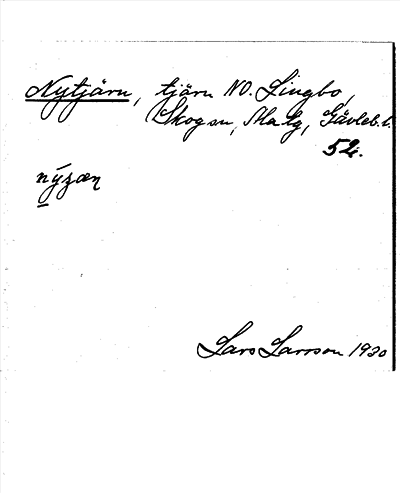 Nytjärn, tjärn NO. Lingbo,
Skog sn, Ma lg, Gävleb. l.
52.
nýȝæn
Lars Larsson 1930